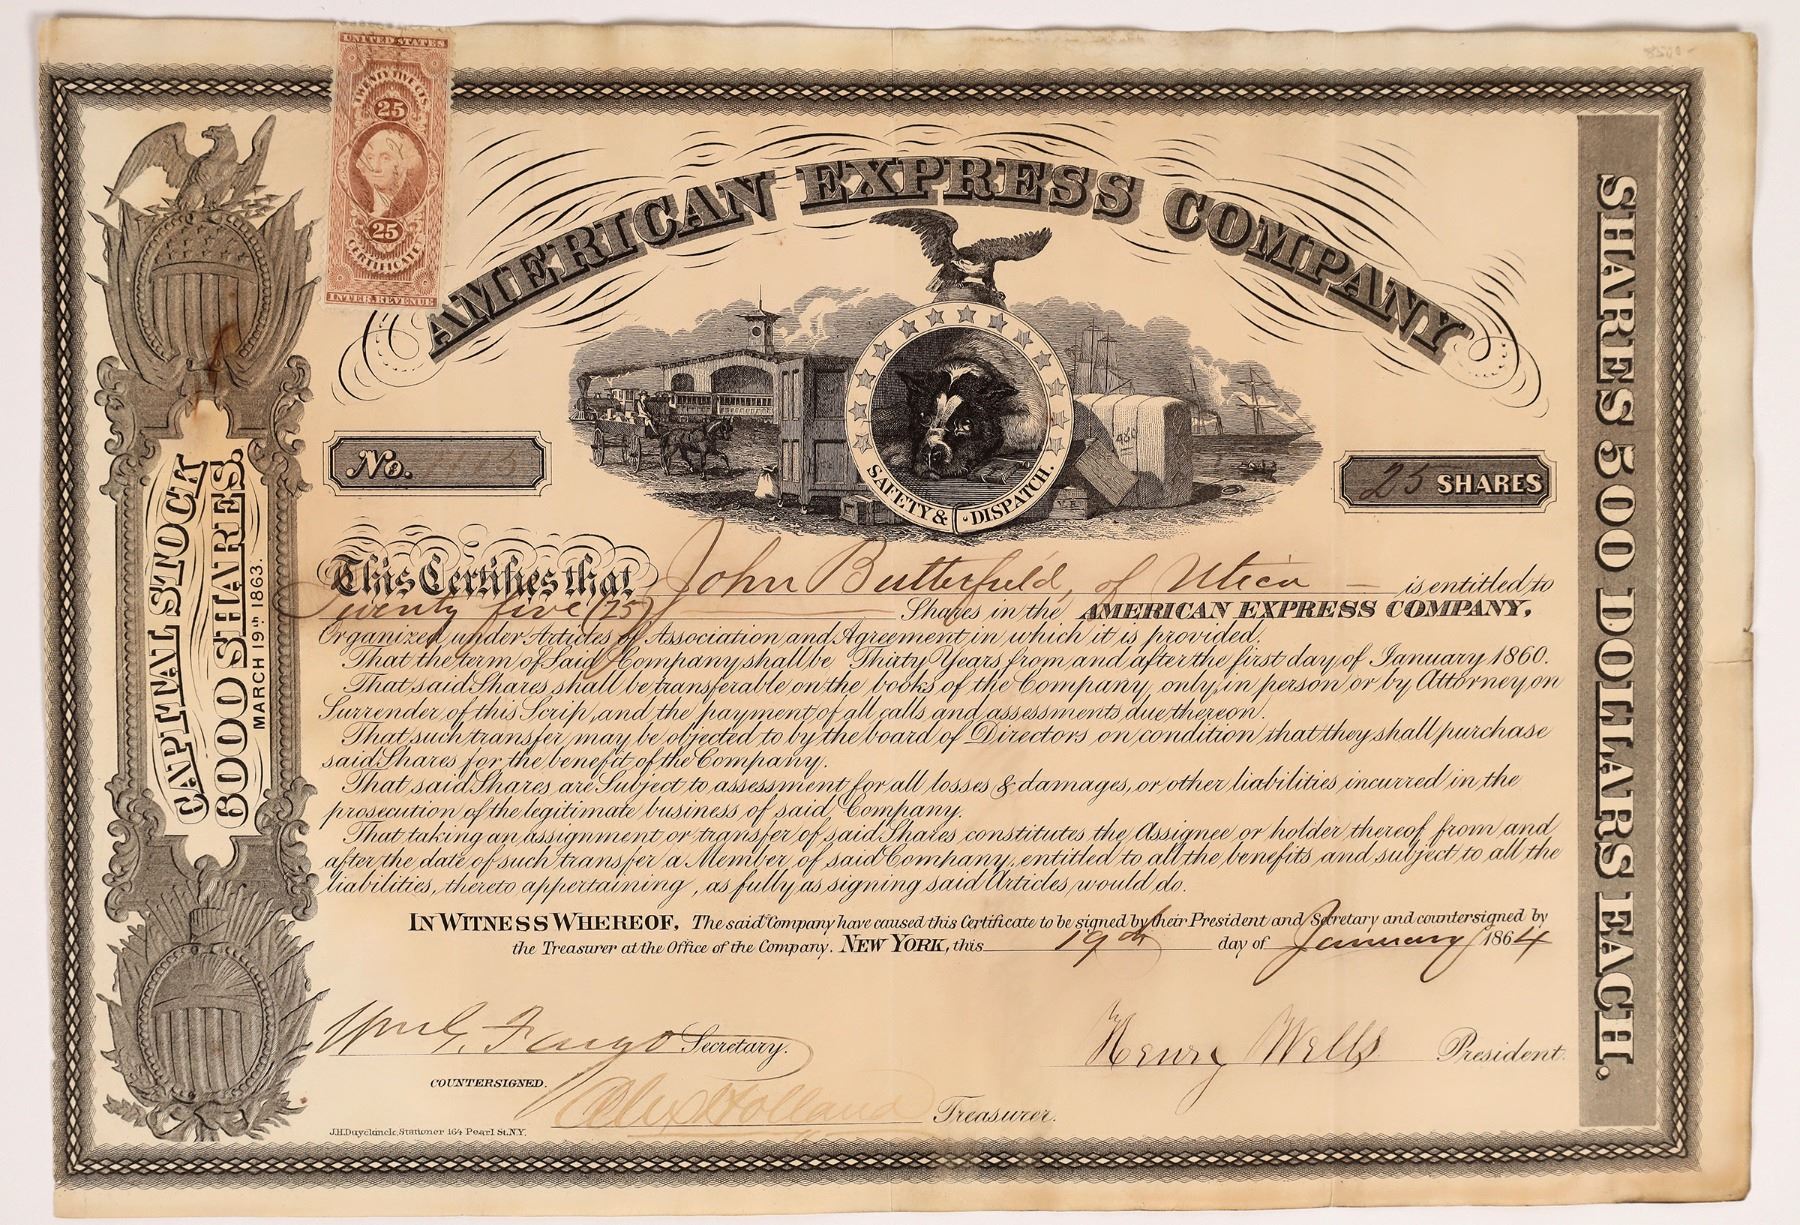 UNITED STATES
TWENTY FIVE CTS.
25
25
CERTIFICATE
INTER. REVENUE
AMERICAN EXPRESS COMPANY
SAFETY & DISPATCH.
480
No.
25 SHARES
CAPITAL STOCK
6000 SHARES.
MARCH 19th 1863.
SHARES 500 DOLLARS EACH.
This Certifies that John Butterfield, of Utica — is entitled to
Twenty five (25) Shares in the AMERICAN EXPRESS COMPANY,
Organized under Articles of Association and Agreement in which it is provided.
That the term of Said Company shall be Thirty Years from and after the first day of January 1860.
That said Shares shall be transferable on the books of the Company, only, in person or by Attorney on
Surrender of this Scrip, and the payment of all calls and assessments due thereon.
That such transfer may be objected to by the board of Directors on condition that they shall purchase
said Shares for the benefit of the Company.
That said Shares are Subject to assessment for all losses & damages, or other liabilities incurred in the
prosecution of the legitimate business of said Company.
That taking an assignment or transfer of said Shares constitutes the Assignee or holder thereof from and
after the date of such transfer a Member of said Company, entitled to all the benefits and subject to all the
liabilities, thereto appertaining, as fully as signing said Articles would do.
IN WITNESS WHEREOF, The said Company have caused this Certificate to be signed by their President and Secretary and countersigned by
the Treasurer at the Office of the Company. NEW YORK, this 19th day of January 1864
Wm G. Fargo Secretary.
Henry Wells President.
COUNTERSIGNED.
Alex Holland Treasurer.
J.H. Duyckinck, Stationer 164 Pearl St. N.Y.